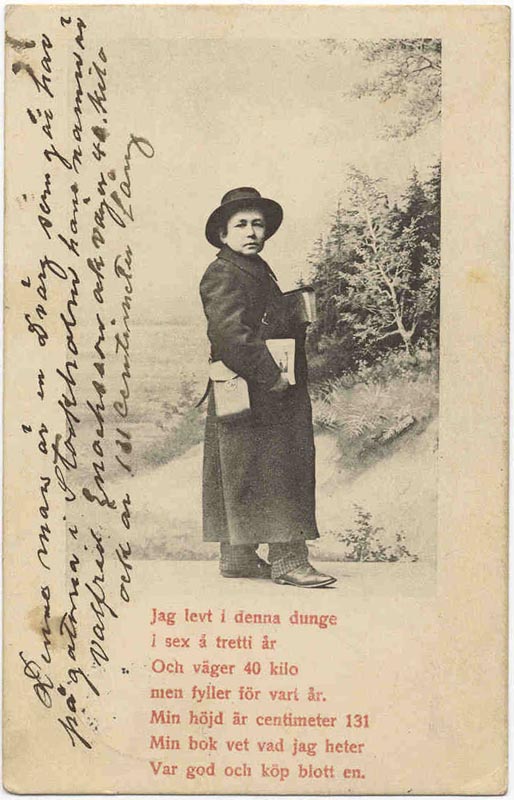 Denna man är en Dvärg som går här
på gatorna i Stockholm hans namn är
Valfrid Enochsson ock väger 40. kilo
ock är 131 centimeter lång
Jag levt i denna dunge
i sex å tretti år
Och väger 40 kilo
men fyller för vart år.
Min höjd är centimeter 131
Min bok vet vad jag heter
Var god och köp blott en.